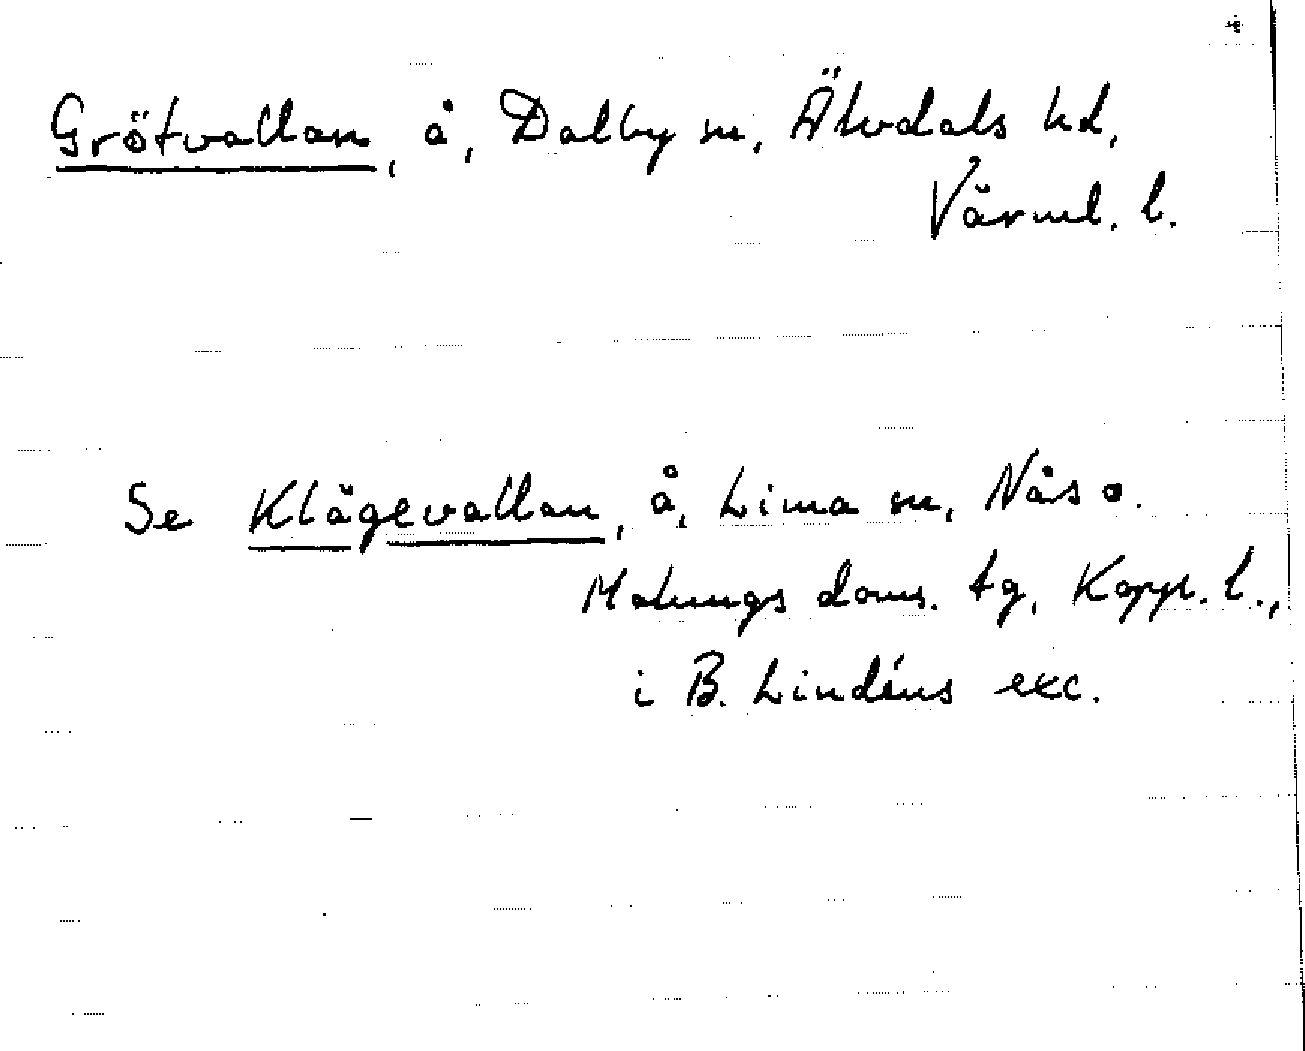 Grötvallan, å, Dalby sn, Älvdals hd,
Värml. l.
Se Klägevallan, å, Lima sn, Nås o.
Malungs doms. tg, Kopp. l.,
i B. Lindéns exc.